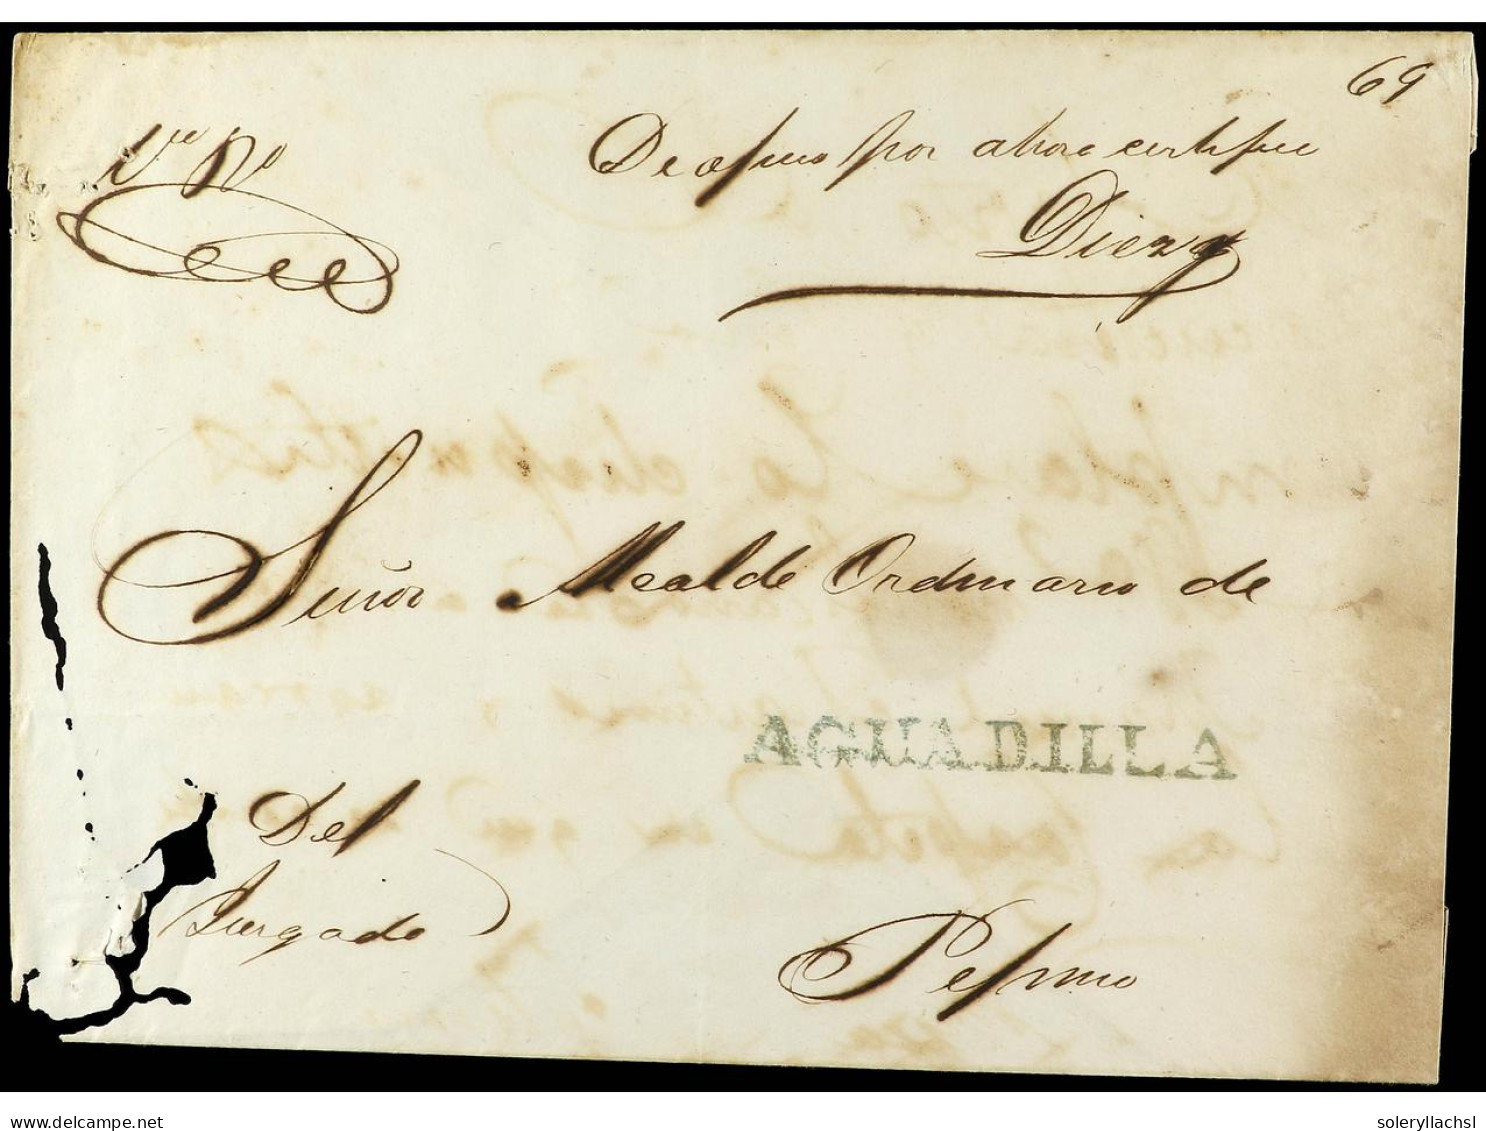 69
De oficio por ahora certifico
Diez
Señor Alcalde Ordinario de
AGUADILLA
Del
Juzgado
Pepino
delcampe.net
soleryllachsl